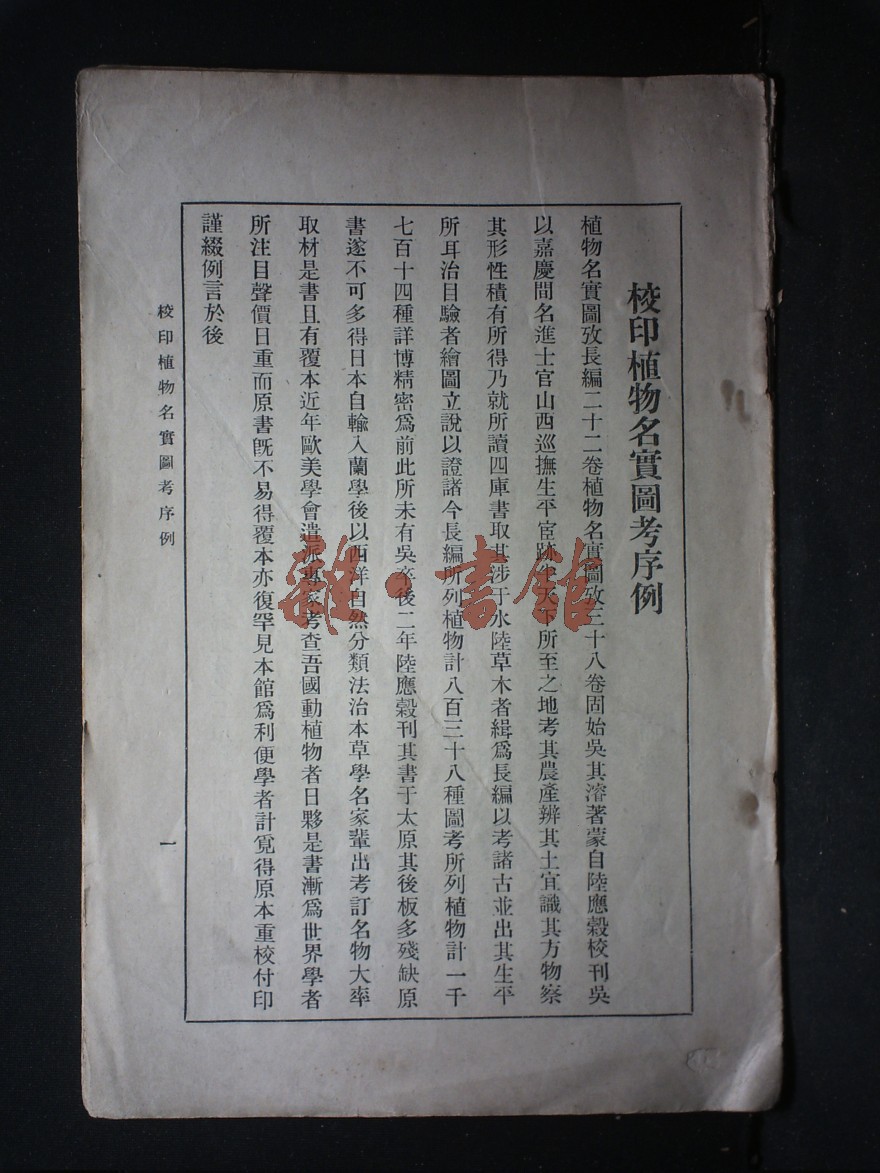 校印植物名實圖考序例
植物名實圖攷長編二十二卷植物名實圖攷三十八卷固始吳其濬著蒙自陸應穀校刊吳
以嘉慶間名進士官山西巡撫生平宦跡天下所至之地考其農產辨其土宜識其方物察
其形性積有所得乃就所讀四庫書取其涉于水陸草木者緝爲長編以考諸古並出其生平
所耳治目驗者繪圖立說以證諸今長編所列植物計八百三十八種圖考所列植物計一千
七百十四種詳博精密爲前此所未有吳卒後二年陸應穀刊其書于太原其後板多殘缺原
書遂不可多得日本自輸入蘭學後以西洋自然分類法治本草學名家輩出考訂名物大率
取材是書且有覆本近年歐美學會遣派專家考查吾國動植物者日夥是書漸爲世界學者
所注目聲價日重而原書旣不易得覆本亦復罕見本館爲利便學者計覓得原本重校付印
謹綴例言於後
校印植物名實圖考序例
一
雜·書館